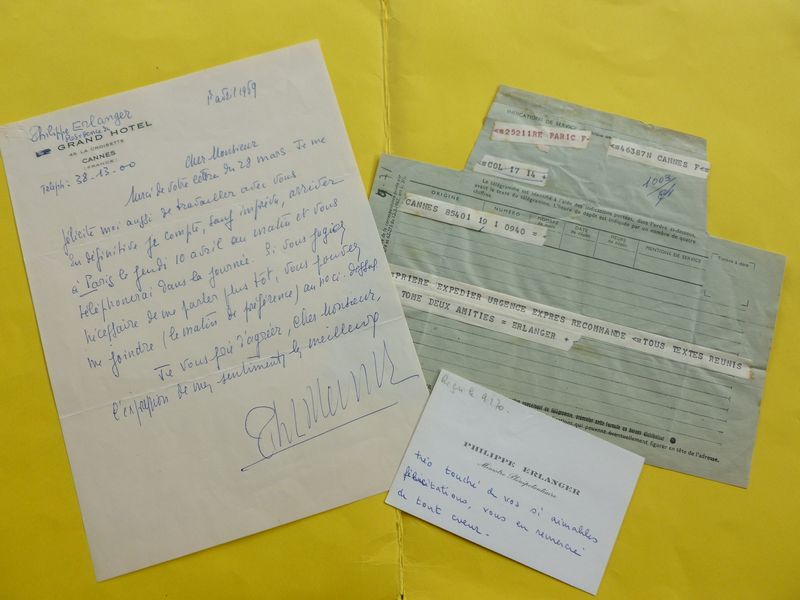 1er avril 1969
Philippe Erlanger
Résidence du
GRAND HOTEL
45 LA CROISETTE
CANNES
(FRANCE)
Téléph: 38-13-00
Cher Monsieur
Merci de votre lettre du 28 mars. Je me
félicite moi aussi de travailler avec vous
En définitive je compte, sauf imprévu, arriver
à Paris le jeudi 10 avril au matin et vous
téléphonerai dans la journée. Si vous jugiez
nécessaire de me parler plus tôt, vous pouvez
me joindre (le matin de préférence) au no ci-dessus
Je vous prie d'agréer, cher Monsieur,
l'expression de mes sentiments les meilleurs
INDICATIONS DE SERVICE
<=25211RE PARIC F=
<=46387N CANNES F<=
<=COL 17 14 +
1003
ORIGINE
NUMÉRO
NOMBRE DE MOTS
DATE
HEURE
MENTIONS DE SERVICE
CANNES 85401 19 1 0940 =
=PRIERE EXPEDIER URGENCE EXPRES RECOMMANDE <=TOUS TEXTES REUNIS
TOME DEUX AMITIES = ERLANGER +
Reçu le 9.1.70.
PHILIPPE ERLANGER
Ministre Plénipotentiaire
très touché de vos si aimables
félicitations, vous en remercie
de tout cœur.